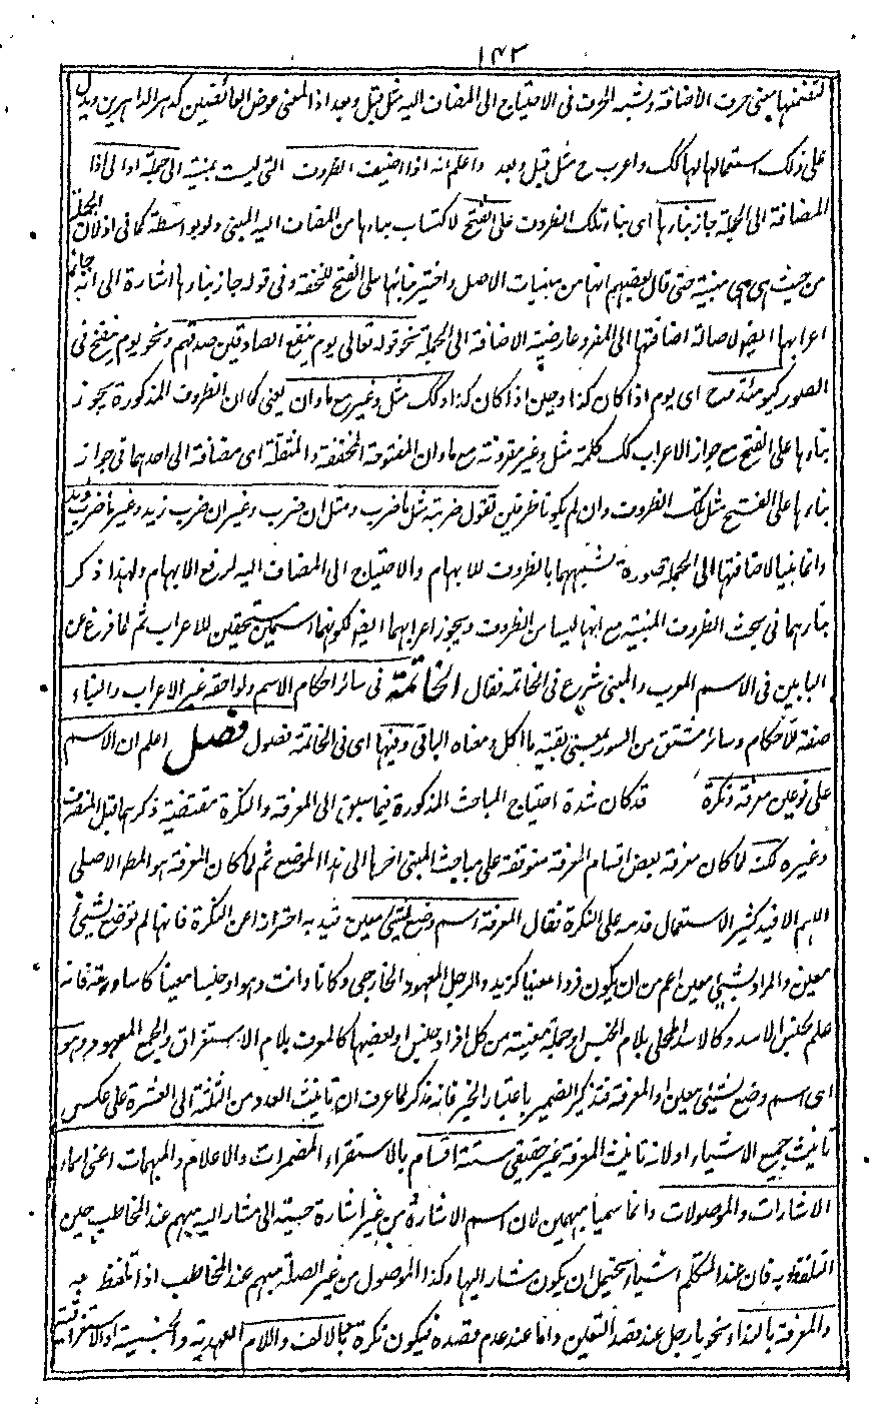 ١٤٢
لتضمنها معنى حرف الاضافة ولشبه الحرف فى الاحتياج الى المضاف اليه مثل قبل وبعد اذا المعنى عوض العائضين كدهر الداهرين ويدل
على ذلك استعمالها لها كك واعرب ح مثل قبل وبعد واعلم انه اذا اضيفت الظروف التى ليست بمبنية الى جملة او الى اذا
المضافة الى الجملة جاز بناءها اى بناء تلك الظروف على الفتح لاكتساب بناءها من المضاف اليه المبنى ولو بواسطة كما فى اذ لان الجملة
من حيث هى هى مبنية حتى قال بعضهم انها من مبنيات الاصل واختير بنائها على الفتح للخفة وفى قوله جاز بناءها اشارة الى انه جائز
اعرابها ايضا لاصالة اضافتها الى المفرد وعارضية الاضافة الى الجملة نحو قوله تعالى يوم ينفع الصادقين صدقهم ونحو يوم ينفخ فى
الصور كيومئذ وح اى يوم اذا كان كذا وحين اذا كان كذا وكك مثل وغير مع ما وان يعنى كما ان الظروف المذكورة يجوز
بناءها على الفتح مع جواز الاعراب كك كلمة مثل وغير مقرونة مع ما وان المفتوحة المخففة والمثقلة اى مضافة الى احدهما فى جواز
بناءها على الفتح مثل تلك الظروف وان لم يكونا ظرفين تقول ضربته مثل ما ضرب ومثل ان ضرب وغير ان ضرب زيد وغير ما ضرب زيد
وانما بنيا لاضافتهما الى الجملة صورة لشبههما بالظروف للابهام والاحتياج الى المضاف اليه لرفع الابهام ولهذا ذكر
بناءهما فى بحث الظروف المبنية مع انهما ليسا من الظروف ويجوز اعرابهما ايضا لكونهما اسمين مستحقين للاعراب ثم لما فرغ عن
البابين فى الاسم المعرب والمبنى شرع فى الخاتمة فقال الخاتمة فى سائر احكام الاسم ولواحقه غير الاعراب والبناء
صفة للاحكام وسائر مشتق من السور بمعنى بقية ما اكل ومعناه الباقى وفيها اى فى الخاتمة فصول فصل اعلم ان الاسم
على نوعين معرفة ونكرة قد كان شدة احتياج المباحث المذكورة فيما سبق الى المعرفة والنكرة مقتضية ذكرهما قبل المنصرف
وغيره لكنه لما كان معرفة بعض اقسام المعرفة متوقفة على مباحث المبنى اخرها الى هذا الموضع ثم لما كان المعرفة هو المط الاصلى
الاهم الافيد كثير الاستعمال قدمه على النكرة فقال المعرفة اسم وضع لشيئ معين قيد به احترازا عن النكرة فانها لم توضع لشيئ
معين والمراد بشيئ معين اعم من ان يكون فردا معينا كزيد والرجل المعهود الخارجى وكانا وانت وهو او جنسا معينا كاسامة فانه
علم لجنس الاسد وكالاسد المحلى بلام الجنس او جملة معينة من كل افراد جنس او بعضها كالمعرف بلام الاستغراق والجمع المعهود وهو
اى اسم وضع لشيئ معين او المعرفة فتذكير الضمير باعتبار الخبر فانه مذكر لما عرف ان تانيث العدد من الثلثة الى العشرة على عكس
تانيث جميع الاشياء او لانه تانيث المعرفة غير حقيقى ستة اقسام بالاستقراء المضمرات والاعلام والمبهمات اعنى اسماء
الاشارات والموصولات وانما سميا مبهمين لان اسم الاشارة من غير اشارة حسية الى مشار اليه مبهم عند المخاطب حين
التلفظ به فان عند المتكلم اشياء يحتمل ان يكون مشار اليها وكذا الموصول من غير الصلة مبهم عند المخاطب اذا تلفظ به
والمعرفة بالنداء نحو يا رجل عند قصد التعين واما عند عدم قصده فيكون نكرة بالالف واللام العهدية والجنسية او الاستغراقية